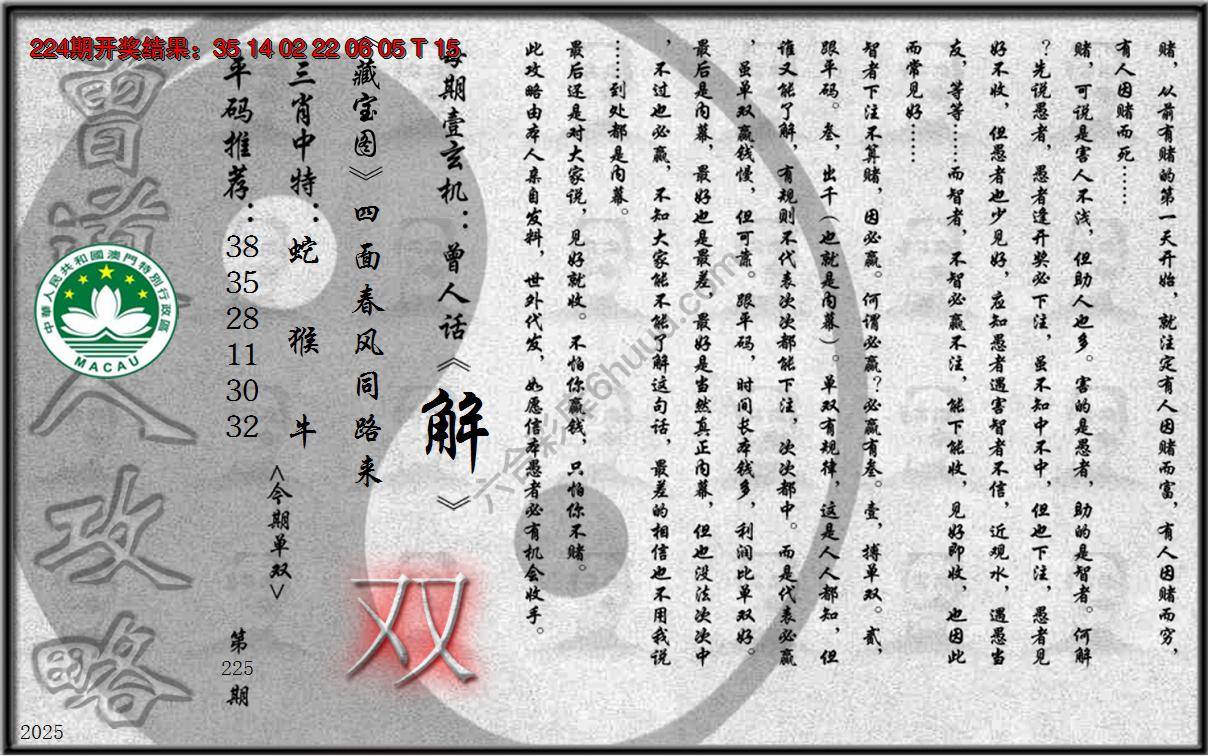 224期开奖结果：35 14 02 22 06 05 T 15
赌，从前有赌的第一天开始，就注定有人因赌而富，有人因赌而穷，
有人因赌而死……
赌，可说是害人不浅，但助人也多。害的是愚者，助的是智者。何解
？先说愚者，愚者逢开奖必下注，虽不知中不中，但也下注，愚者见
好不收，但愚者也少见好，应知愚者遇害智者不信，近观水，遇愚当
友，等等……而智者，不智必赢不注，能下能收，见好即收，也因此
而常见好……
智者下注不算赌，因必赢。何谓必赢？必赢有叁。壹，搏单双。贰，
跟平码。叁，出千（也就是内幕）。单双有规律，这是人人都知，但
谁又能了解，有规则不代表次次都能下注，次次都中。而是代表必赢
，虽单双赢钱慢，但可靠。跟平码，时间长本钱多，利润比单双好。
最后是内幕，最好也是最差，最好是当然真正内幕，但也没法次次中
，不过也必赢，不知大家能不能了解这句话，最差的相信也不用我说
……到处都是内幕。
最后还是对大家说，见好就收。不怕你赢钱，只怕你不赌。
此攻略由本人亲自发料，世外代发，如愿信本愚者必有机会收手。
每期壹玄机：曾人话《解》
《藏宝图》四面春风同路来
双
三肖中特：蛇 猴 牛
<今期单双>
平码推荐：38 35 28 11 30 32
第225期
曾道人攻略
中華人民共和國澳門特別行政區
MACAU
六合彩库6huuu.com
2025